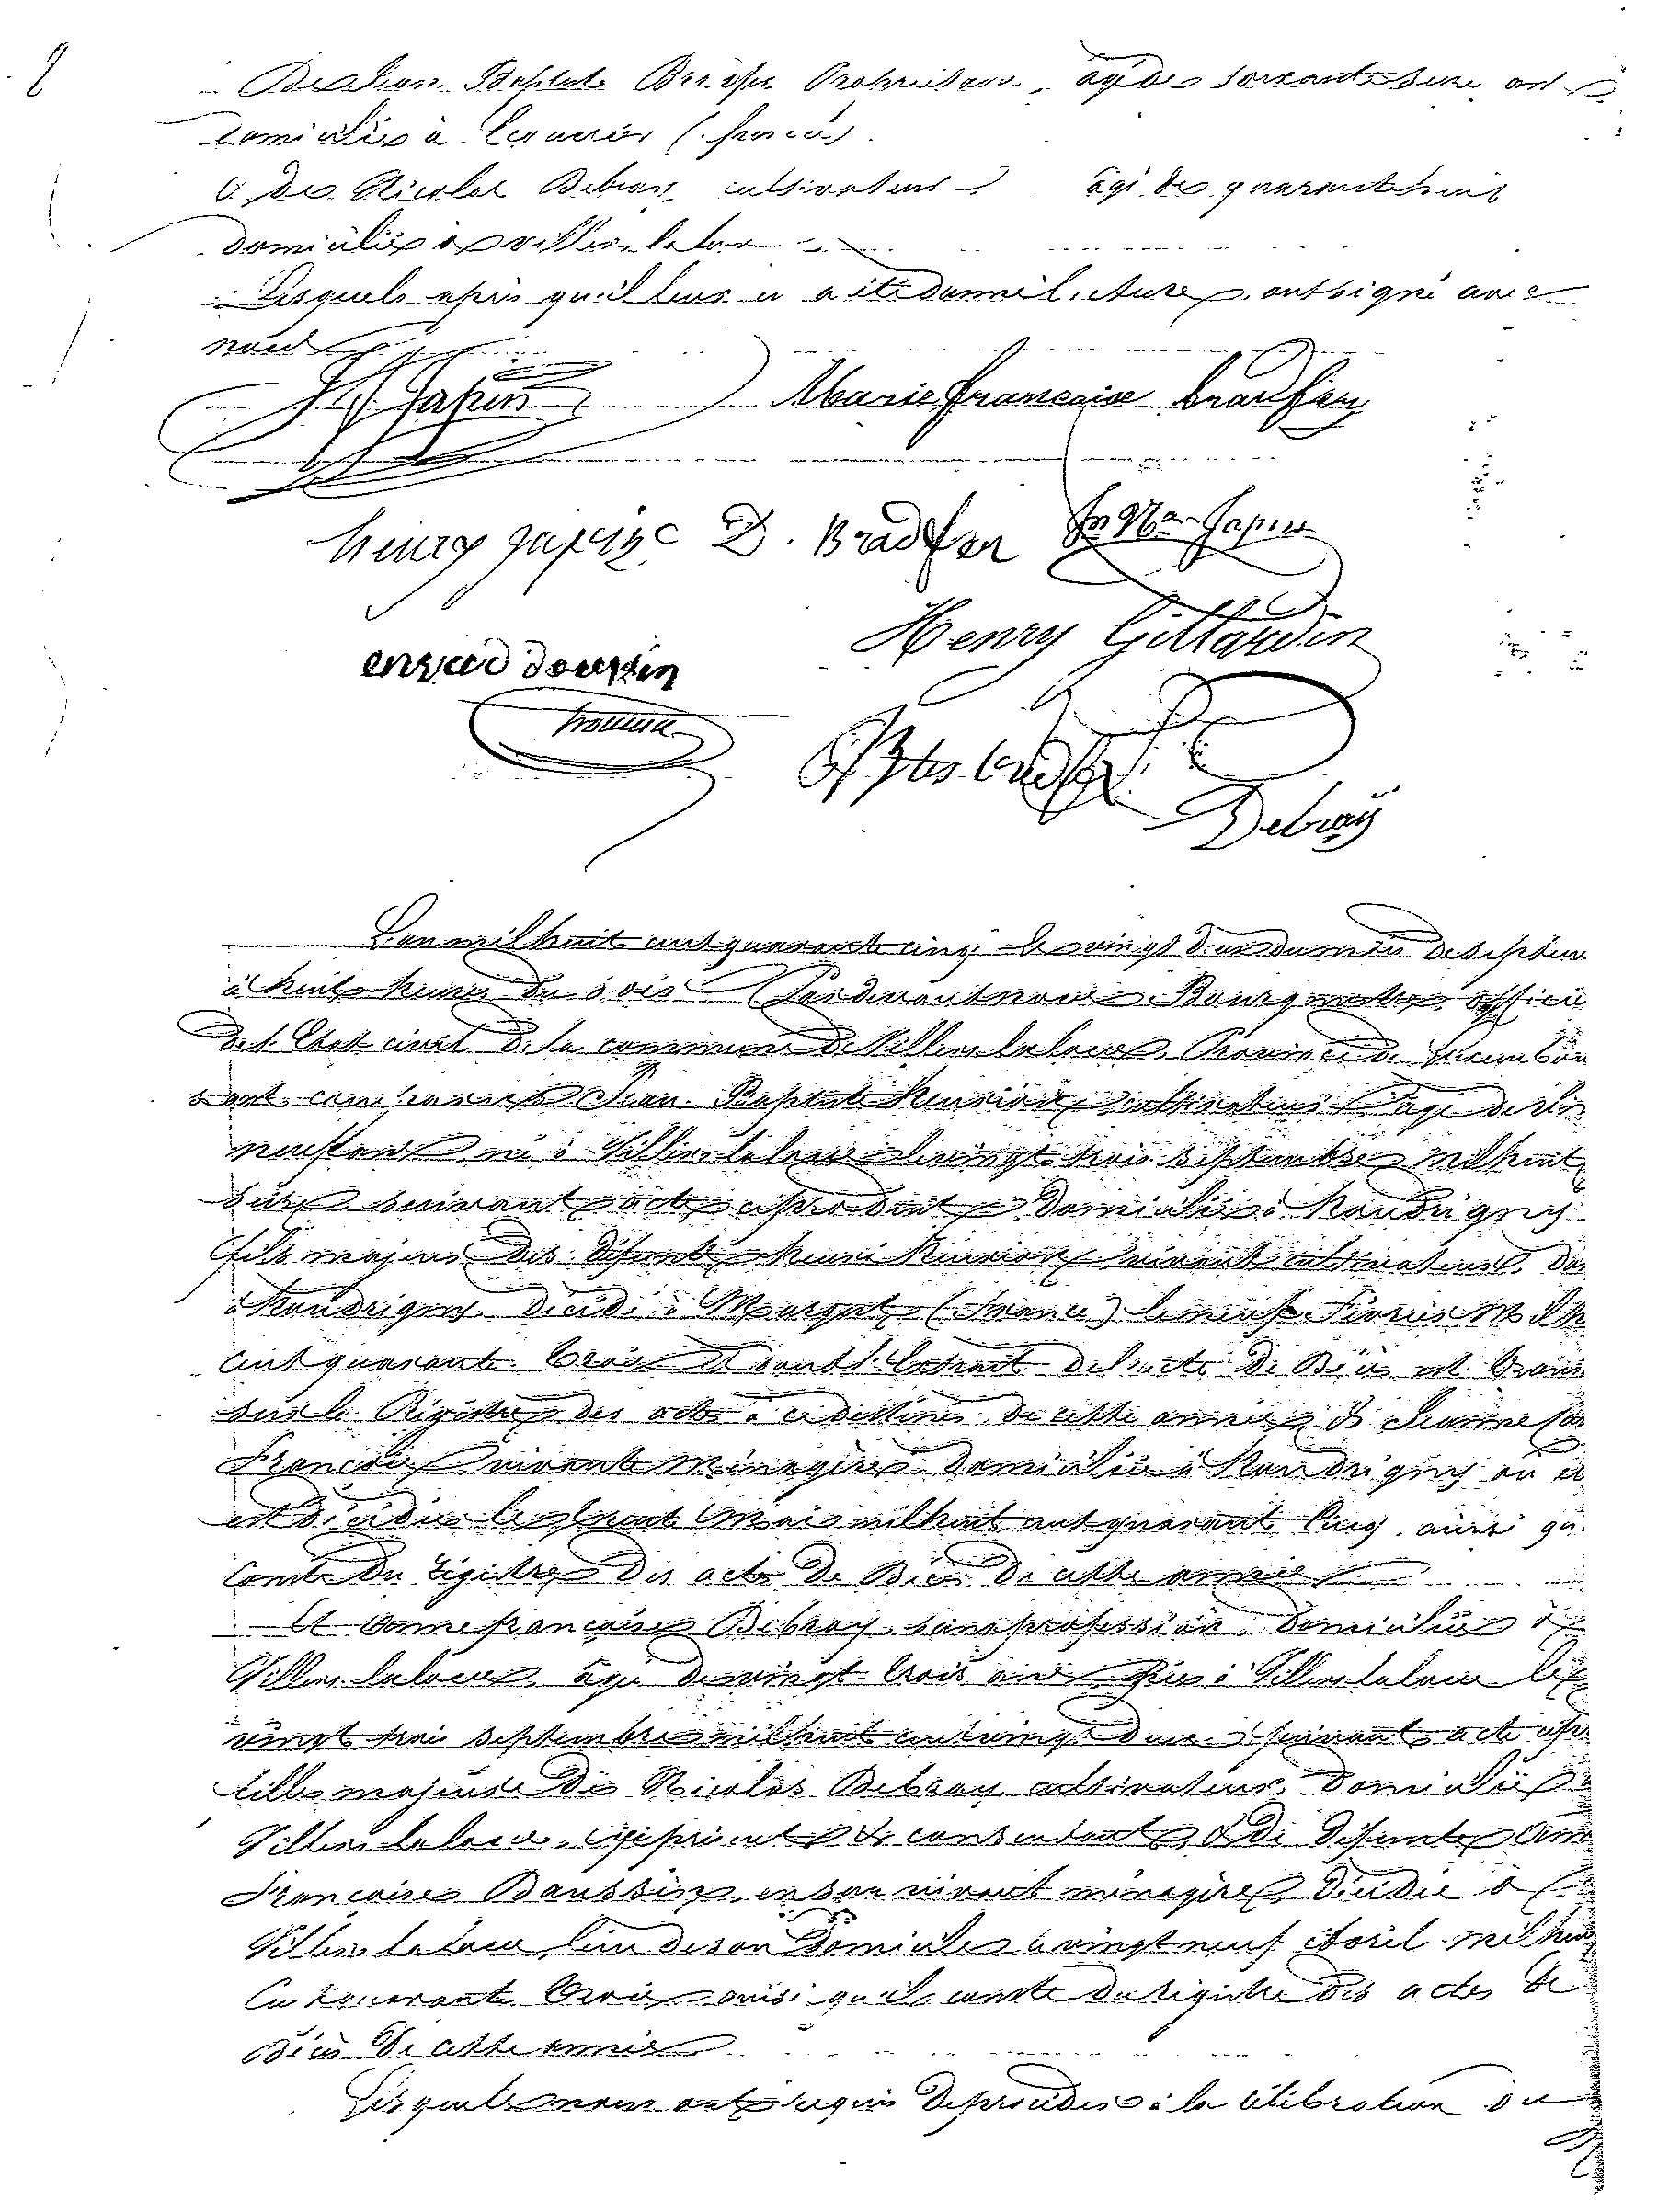 De Jean Baptiste Propriétaire, agé de soixante seize ans
domicilié à (france)
& de Nicolas Debray cultivateur agé de quarante huit
domicilié à villers la loue
Lesquels après qu'il leur en a été donné lecture, ont signé avec
nous
Japin Marie francoise bradfer
henry japin D. Bradfer Jn Nas Japin
Henry Gillardin
Debray
L'an mil huit cent quarante cinq le vingt deux du mois de septem
à huit heures du soir Pardevant nous Bourgmestre officier
de l'Etat civil de la commune de Villers la loue, Province de Luxembou
sont comparus Jean Baptiste Henrion cultivateur agé de
neuf ans né à Villers la loue le vingt trois septembre mil huit
suivant acte domicilié à Houdrigny
fils majeur des défunts Henri Henrion vivant cultivateur do
à Houdrigny décédé à Margut (France) le neuf Février mil h
cent quarante trois et dont l'Extrait de l'acte de Décès est trans
sur le Registre des actes à ce destinés de cette année & Jeanne
François vivante ménagère domiciliée à Houdrigny où el
est décédée le trente Mars mil huit cent quarante cinq ainsi qu
Conste du registre des actes de Décès de cette année
Et Anne françoise Debray sans profession domiciliée à
Villers la loue, agé de vingt trois ans née à Villers la loue le
vingt trois septembre mil huit cent vingt deux suivant acte
fille majeure de Nicolas Debray cultivateur domicilié à
Villers la loue, ci présent & consentant & de défunte Ann
Françoise Daussin en son vivant ménagère décédée à
Villers la loue lieu de son domicile le vingt neuf Avril mil hui
Cent quarante trois ainsi qu'il conste du registre des actes de
décès de cette année
Lesquels nous ont requis de procéder à la célébration du